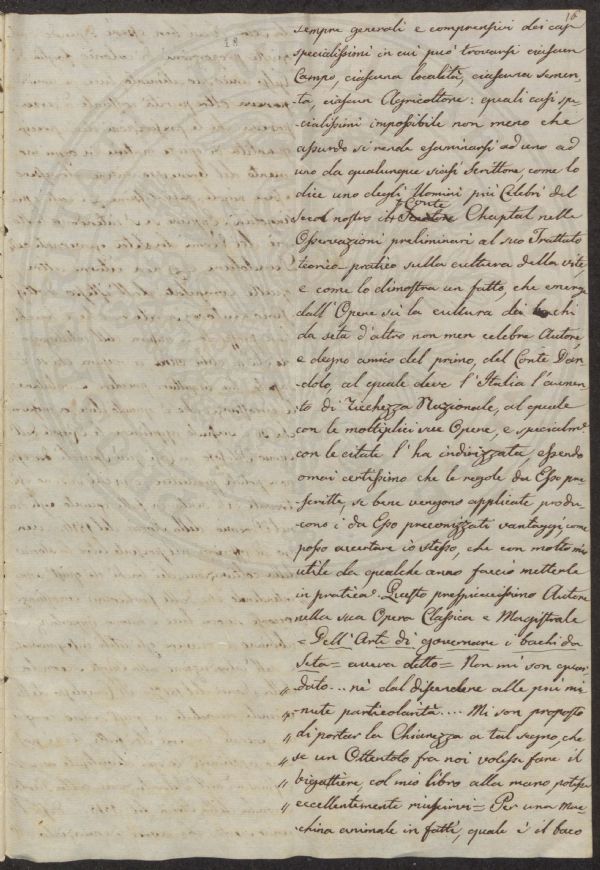 16
18
sempre generali e comprensivi dei casi
specialissimi in cui può trovarsi ciascun
Campo, ciascuna località, ciascuna semen-
ta, ciascun Agricoltore: quali casi spe-
cialissimi impossibile non meno che
assurdo si rende esaminarsi ad uno ad
uno da qualunque siasi Scrittore, come lo
dice uno degli Uomini più Celebri del
secol nostro il Conte Chaptal nelle
Osservazioni preliminari al suo Trattato
teorico-pratico sulla cultura della vite,
e come lo dimostra un fatto, che emerge
dall'Opere sù la cultura dei bachi
da seta d'altro non men celebre Autore
e degno amico del primo, del Conte Dan-
dolo, al quale deve l'Italia l'aumen-
to di Ricchezza Nazionale, al quale
con le moltiplici sue Opere, e specialme
con le citate l'ha indirizzata, essendo
omai certissimo che le regole da Esso pre-
scritte, se bene vengono applicate produ-
cono i da Esso preconizzati vantaggi, come
posso accertare io stesso, che con molto mio
utile da qualche anno faccio metterle
in pratica. Questo perspicacissimo Autore
nella sua Opera Classica e Magistrale
= Dell'Arti di governare i bachi da
Seta = aveva detto = Non mi son guar-
" dato... nè dal discendere alle più mi-
" nute particolarità.... Mi son proposto
" di portar la Chiarezza a tal segno, che
" se un Ottentoto fra noi volesse fare il
" bigattiere, col mio libro alla mano potesse
" eccellentemente riuscirvi = Per una mac-
china animale in fatti, quale è il baco